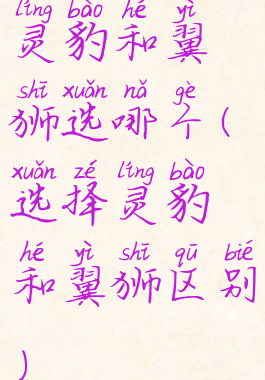 líng bào hé yì
灵豹和翼
shī xuǎn nǎ gè
狮选哪个(
xuǎn zé líng bào
选择灵豹
hé yì shī qū bié
和翼狮区别
)